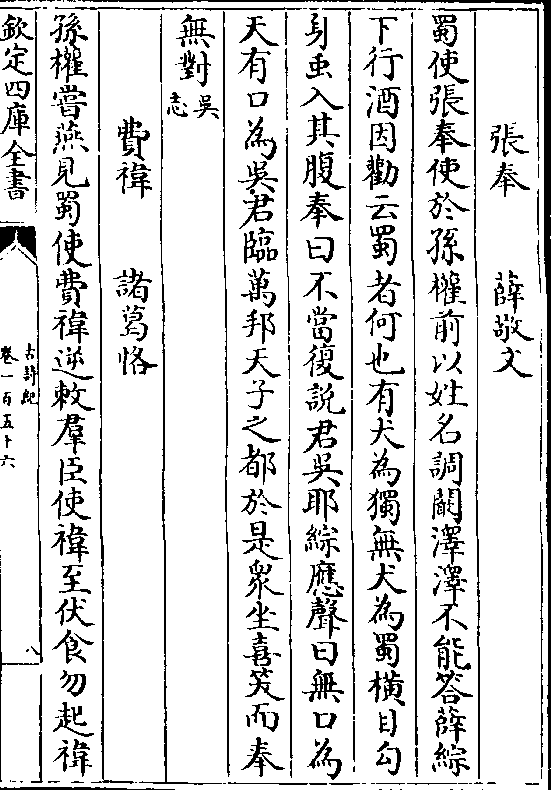 張奉　　薛敬文
蜀使張奉使於孫權前以姓名調闞澤澤不能答薛綜
下行酒因勸云蜀者何也有犬為獨無犬為蜀橫目勾
身虫入其腹奉曰不當復説君吳耶綜應聲曰無口為
天有口為吳君臨萬邦天子之都於是衆坐喜笑而奉
無對吳志
費禕　　諸葛恪
孫權嘗燕見蜀使費禕逆敕羣臣使禕至伏食勿起禕
欽定四庫全書
古詩紀
卷一百五十六
八